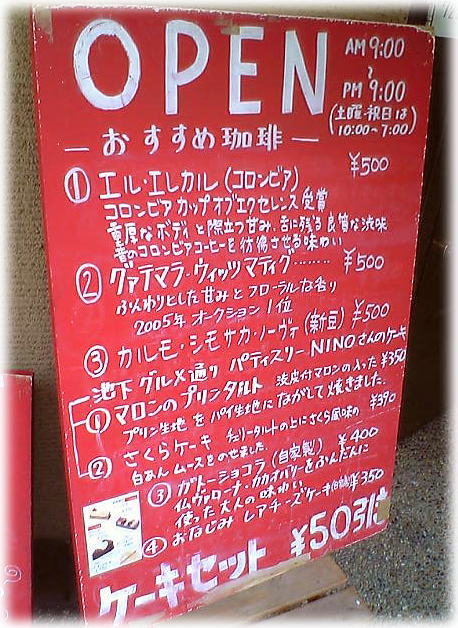 OPEN
AM 9:00
~
PM 9:00
(土曜・祝日は
10:00~7:00)
—おすすめ珈琲—
① エル・エレカル (コロンビア) ¥500
コロンビア カップオブエクセレンス 受賞
重厚なボディと際立つ甘み、舌に残る良質な渋味
昔のコロンビアコーヒーを彷彿させる味わい
② グァテマラ・ウィッツマティグ…… ¥500
ふんわりとした甘みとフローラルな香り
2005年 オークション 1位
③ カルモ・シモサカ・ノーヴァ (新豆) ¥500
池下 グルメ通り パティスリー NINOさんのケーキ
① マロンのプリンタルト 渋皮付マロンの入った ¥350
プリン生地をパイ生地にながして焼きました。
② さくらケーキ チェリータルトの上にさくら風味の ¥390
白あんムースをのせました
③ ガトーショコラ (自家製) ¥400
ヴァローナ・カカオパウダーをふんだんに
使った大人の味わい
④ おなじみ レアチーズケーキ ¥350
ケーキセット ¥50引き